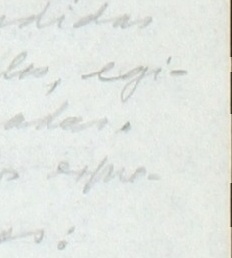 ndidas
los, egi-
adas.
os espe-
os: